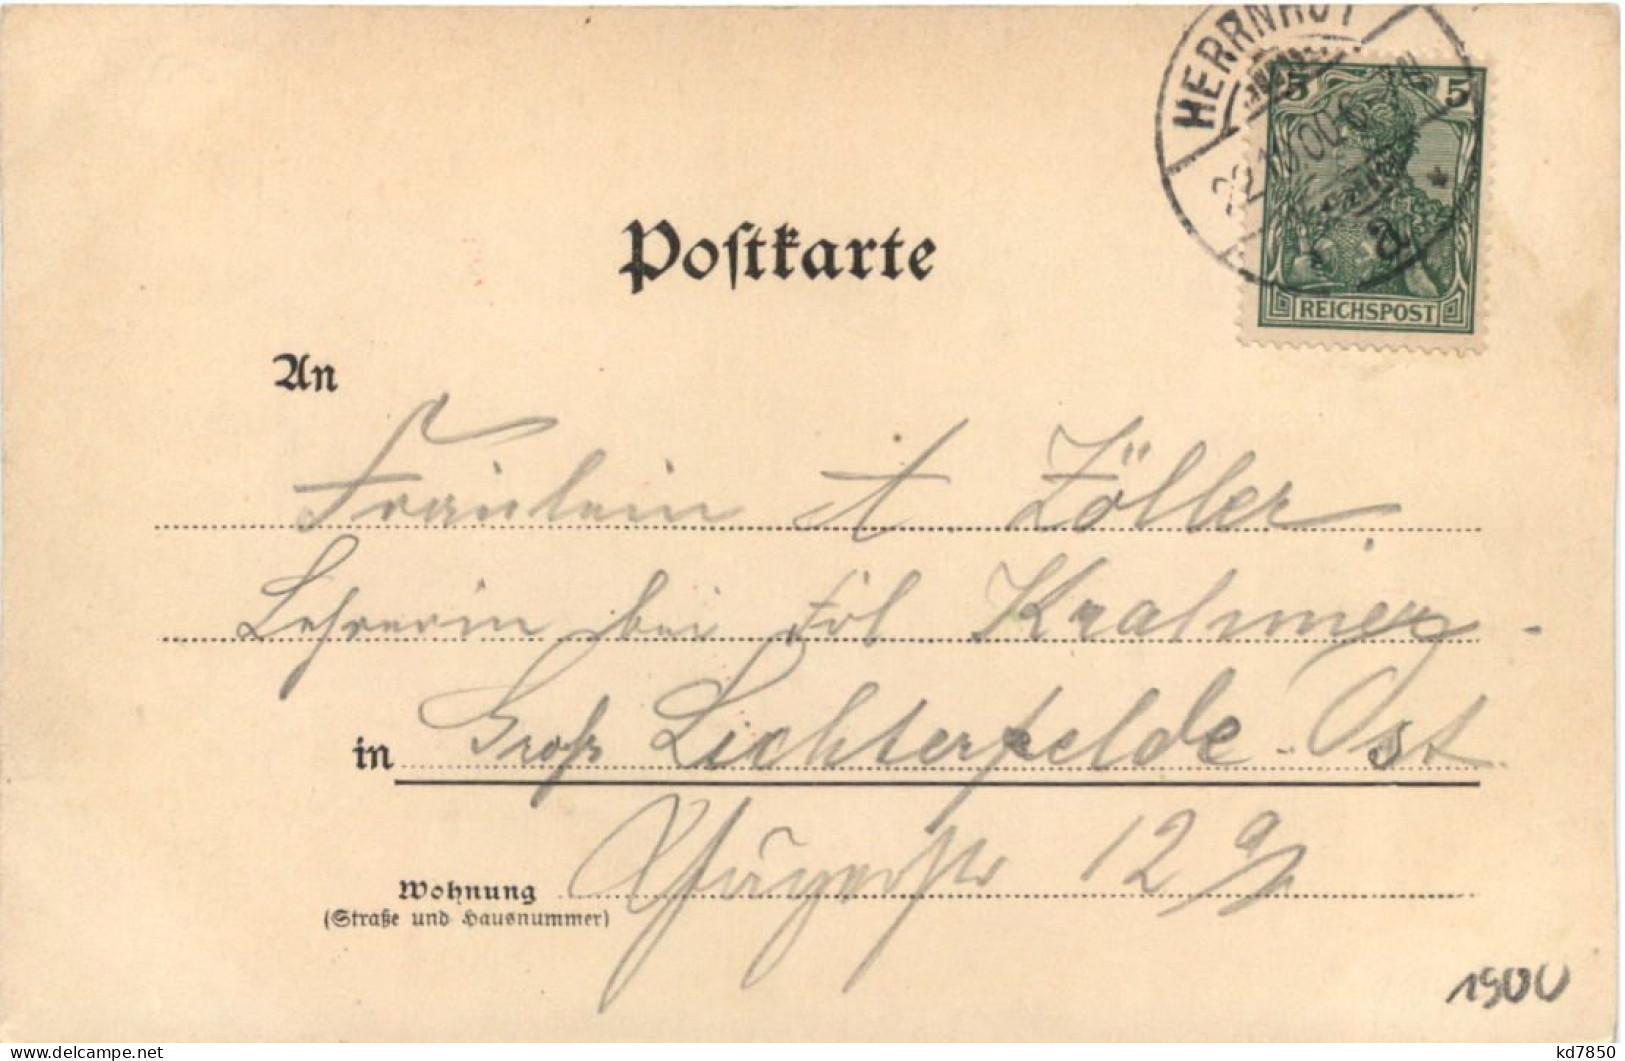 HERRNHUT
5 5
a
REICHSPOST
Postkarte
An
Fräulein A. Zöller
Lehrerin bei Frl. Krahmer
in Groß Lichterfelde-Ost
Wohnung 12
(Straße und Hausnummer)
1900
kd7850